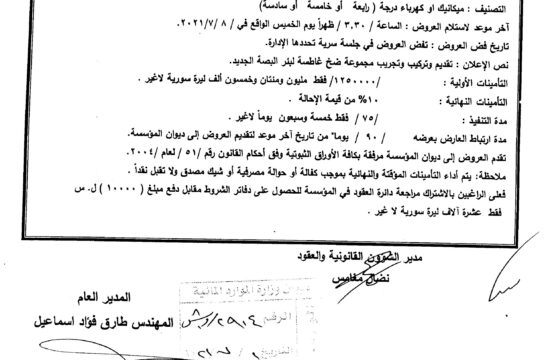 التصنيف : ميكانيك او كهرباء درجة ( رابعة أو خامسة أو سادسة)
آخر موعد لاستلام العروض : الساعة / ٣,٣٠ / ظهراً يوم الخميس الواقع في / ٢٠٢١/٧/٨ .
تاريخ فض العروض : تفض العروض في جلسة سرية تحددها الإدارة.
نص الإعلان : تقديم وتركيب وتجريب مجموعة ضخ غاطسة لبئر البصة الجديد.
التأمينات الأولية : /١٢٥٠٠٠٠/ فقط مليون ومئتان وخمسون ألف ليرة سورية لاغير .
التأمينات النهائية : ١٠% من قيمة الإحالة .
مدة التنفيذ : / ٧٥ / فقط خمسة وسبعون يوماً لاغير .
مدة ارتباط العارض بعرضه / ٩٠ / يوما" من تاريخ آخر موعد لتقديم العروض إلى ديوان المؤسسة.
تقدم العروض إلى ديوان المؤسسة مرفقة بكافة الأوراق الثبوتية وفق أحكام القانون رقم /٥١/ لعام /٢٠٠٤.
ملاحظة: يتم أداء التأمينات المؤقتة والنهائية بموجب كفالة أو حوالة مصرفية أو شيك مصدق ولا تقبل نقداً .
فعلى الراغبين بالاشتراك مراجعة دائرة العقود في المؤسسة للحصول على دفاتر الشروط مقابل دفع مبلغ ( ١٠٠٠٠ ) ل. س
فقط عشرة آلاف ليرة سورية لا غير .
مدير الشؤون القانونية والعقود
نضال مغامس
وزارة الموارد المائية
المدير العام
الرقم ٢٩١٤
المهندس طارق فؤاد اسماعيل
التاريخ